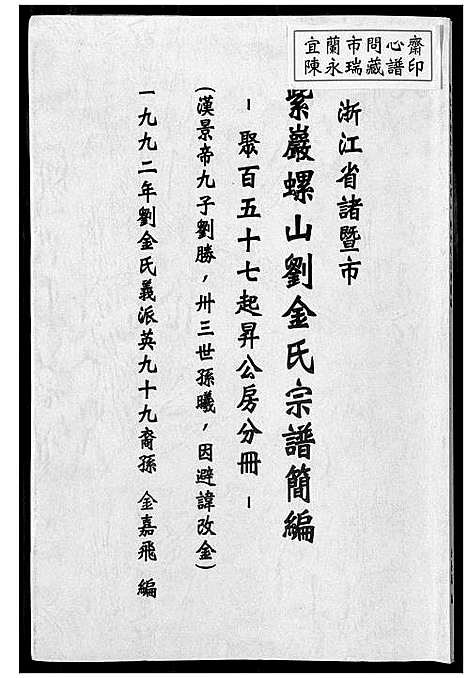 宜蘭市問心齋
陳永瑞藏譜印
浙江省諸暨市
紫巖螺山劉金氏宗譜簡編
－聚百五十七起昇公房分冊－
(漢景帝九子劉勝，卅三世孫曦，因避諱改金)
一九九二年劉金氏義派英九十九裔孫 金嘉飛 編